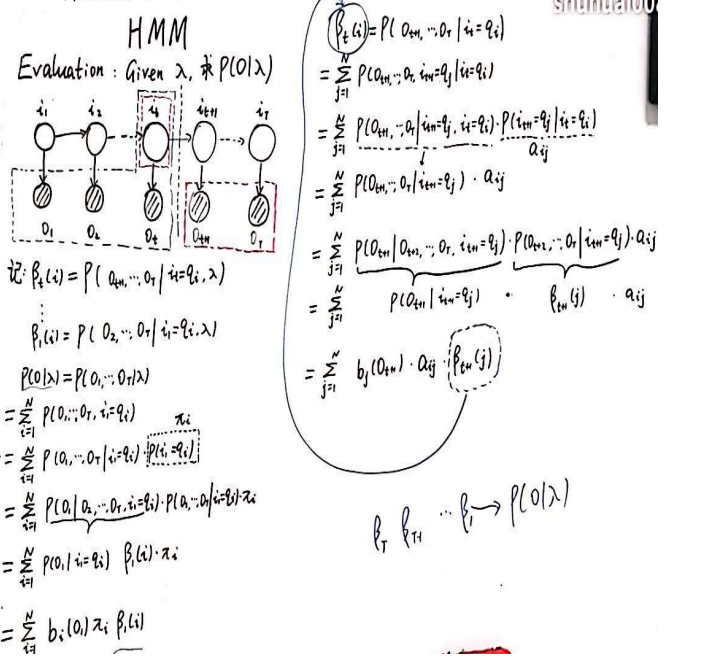 shuhuai008
HMM
Evaluation : Given λ, 求 P(O|λ)
i₁ i₂ iₜ iₜ₊₁ i_T
O₁ O₂ Oₜ Oₜ₊₁ O_T
记: βₜ(i) = P( Oₜ₊₁, ⋯, O_T | iₜ=qᵢ, λ)
⋮
β₁(i) = P( O₂, ⋯, O_T | i₁=qᵢ, λ)
P(O|λ) = P(O₁, ⋯, O_T|λ)
= ∑ᵢ₌₁ᴺ P(O₁, ⋯, O_T, i₁=qᵢ)
πᵢ
= ∑ᵢ₌₁ᴺ P(O₁, ⋯, O_T | i₁=qᵢ) · P(i₁=qᵢ)
= ∑ᵢ₌₁ᴺ P(O₁ | O₂, ⋯, O_T, i₁=qᵢ) · P(O₂, ⋯, O_T | i₁=qᵢ) · πᵢ
= ∑ᵢ₌₁ᴺ P(O₁ | i₁=qᵢ) β₁(i) · πᵢ
= ∑ᵢ₌₁ᴺ bᵢ(O₁) πᵢ β₁(i)
βₜ(i) = P( Oₜ₊₁, ⋯, O_T | iₜ=qᵢ)
= ∑ⱼ₌₁ᴺ P(Oₜ₊₁, ⋯, O_T, iₜ₊₁=qⱼ | iₜ=qᵢ)
= ∑ⱼ₌₁ᴺ P(Oₜ₊₁, ⋯, O_T | iₜ₊₁=qⱼ, iₜ=qᵢ) · P(iₜ₊₁=qⱼ | iₜ=qᵢ)
aᵢⱼ
= ∑ⱼ₌₁ᴺ P(Oₜ₊₁, ⋯, O_T | iₜ₊₁=qⱼ) · aᵢⱼ
= ∑ⱼ₌₁ᴺ P(Oₜ₊₁ | Oₜ₊₂, ⋯, O_T, iₜ₊₁=qⱼ) · P(Oₜ₊₂, ⋯, O_T | iₜ₊₁=qⱼ) · aᵢⱼ
= ∑ⱼ₌₁ᴺ P(Oₜ₊₁ | iₜ₊₁=qⱼ) · βₜ₊₁(j) · aᵢⱼ
= ∑ⱼ₌₁ᴺ bⱼ(Oₜ₊₁) · aᵢⱼ · βₜ₊₁(j)
β_T β_T₋₁ ⋯ β₁ → P(O|λ)